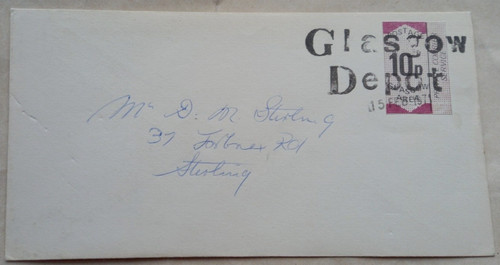 Glasgow
Depot
POSTAGE
10p
GLASGOW
AREA
15 FEB 1971
Mr D. M Stirling
37
Rd
Stirling